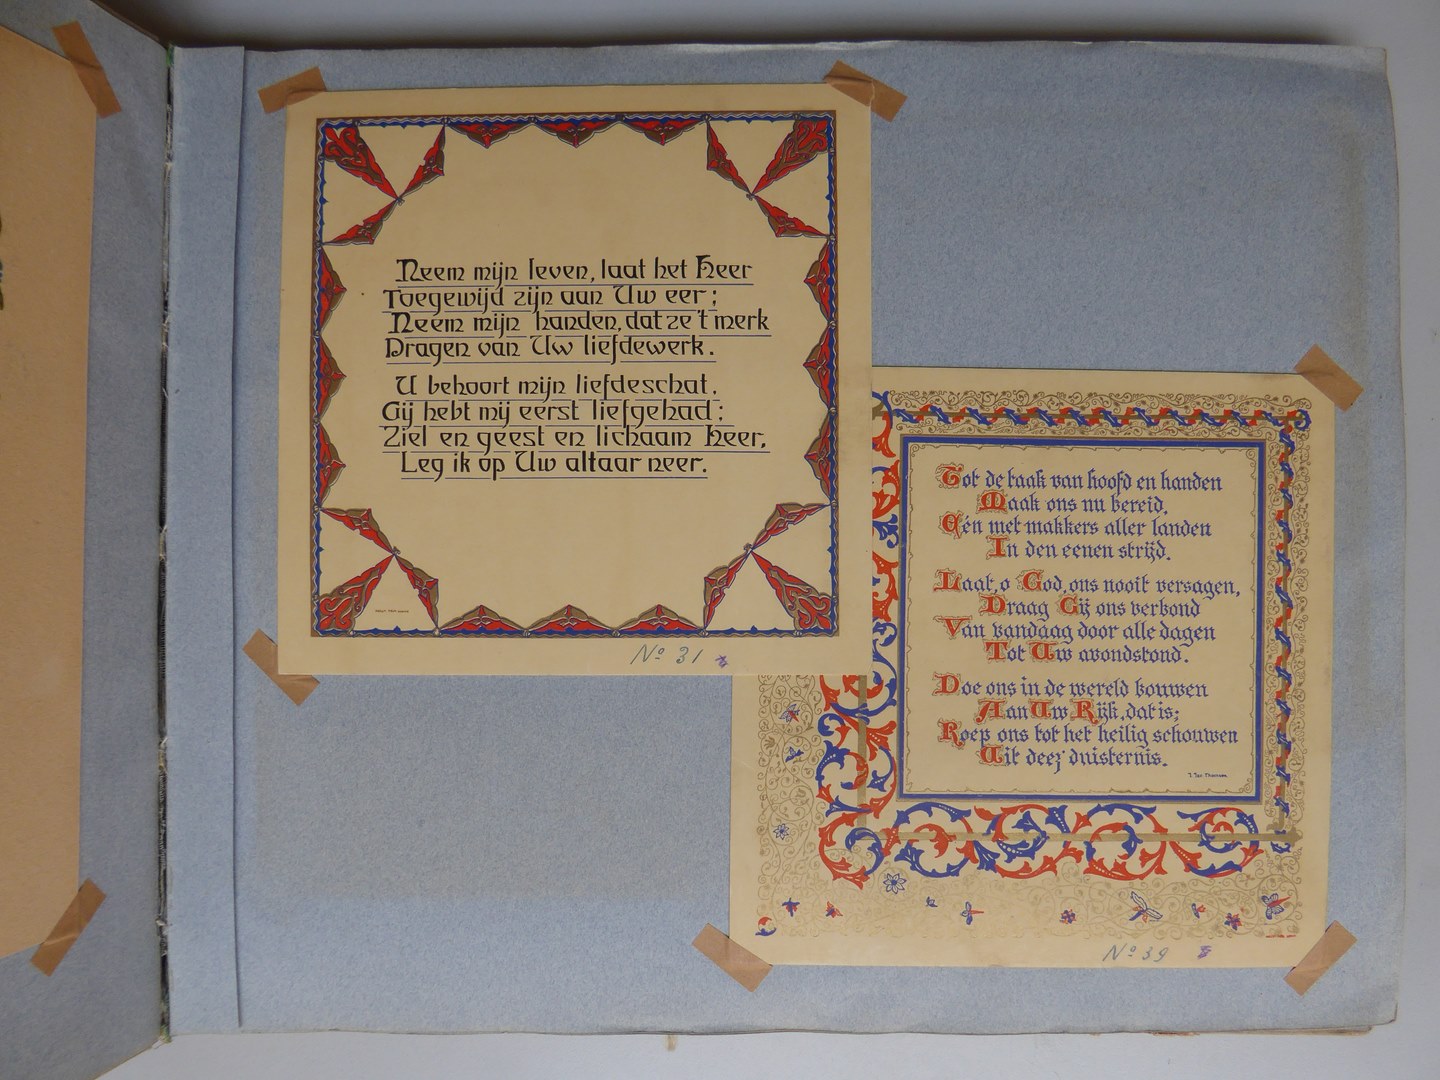 Neem mijn leven, laat het Heer
Toegewijd zijn aan Uw eer;
Neem mijn handen, dat ze 't merk
Dragen van Uw liefdewerk.
U behoort mijn liefdeschat.
Gij hebt mij eerst liefgehad;
Ziel en geest en lichaam Heer,
Leg ik op Uw altaar neer.
No 31
Tot de taak van hoofd en handen
Maak ons nu bereid,
Eén met makkers aller landen
In den eenen strijd.
Laat, o God, ons nooit versagen,
Draag Gij ons verbond
Van vandaag door alle dagen
Tot Uw avondstond.
Doe ons in de wereld bouwen
Aan Uw Rijk, dat is;
Roep ons tot het heilig schouwen
Uit deez' duisternis.
No 39